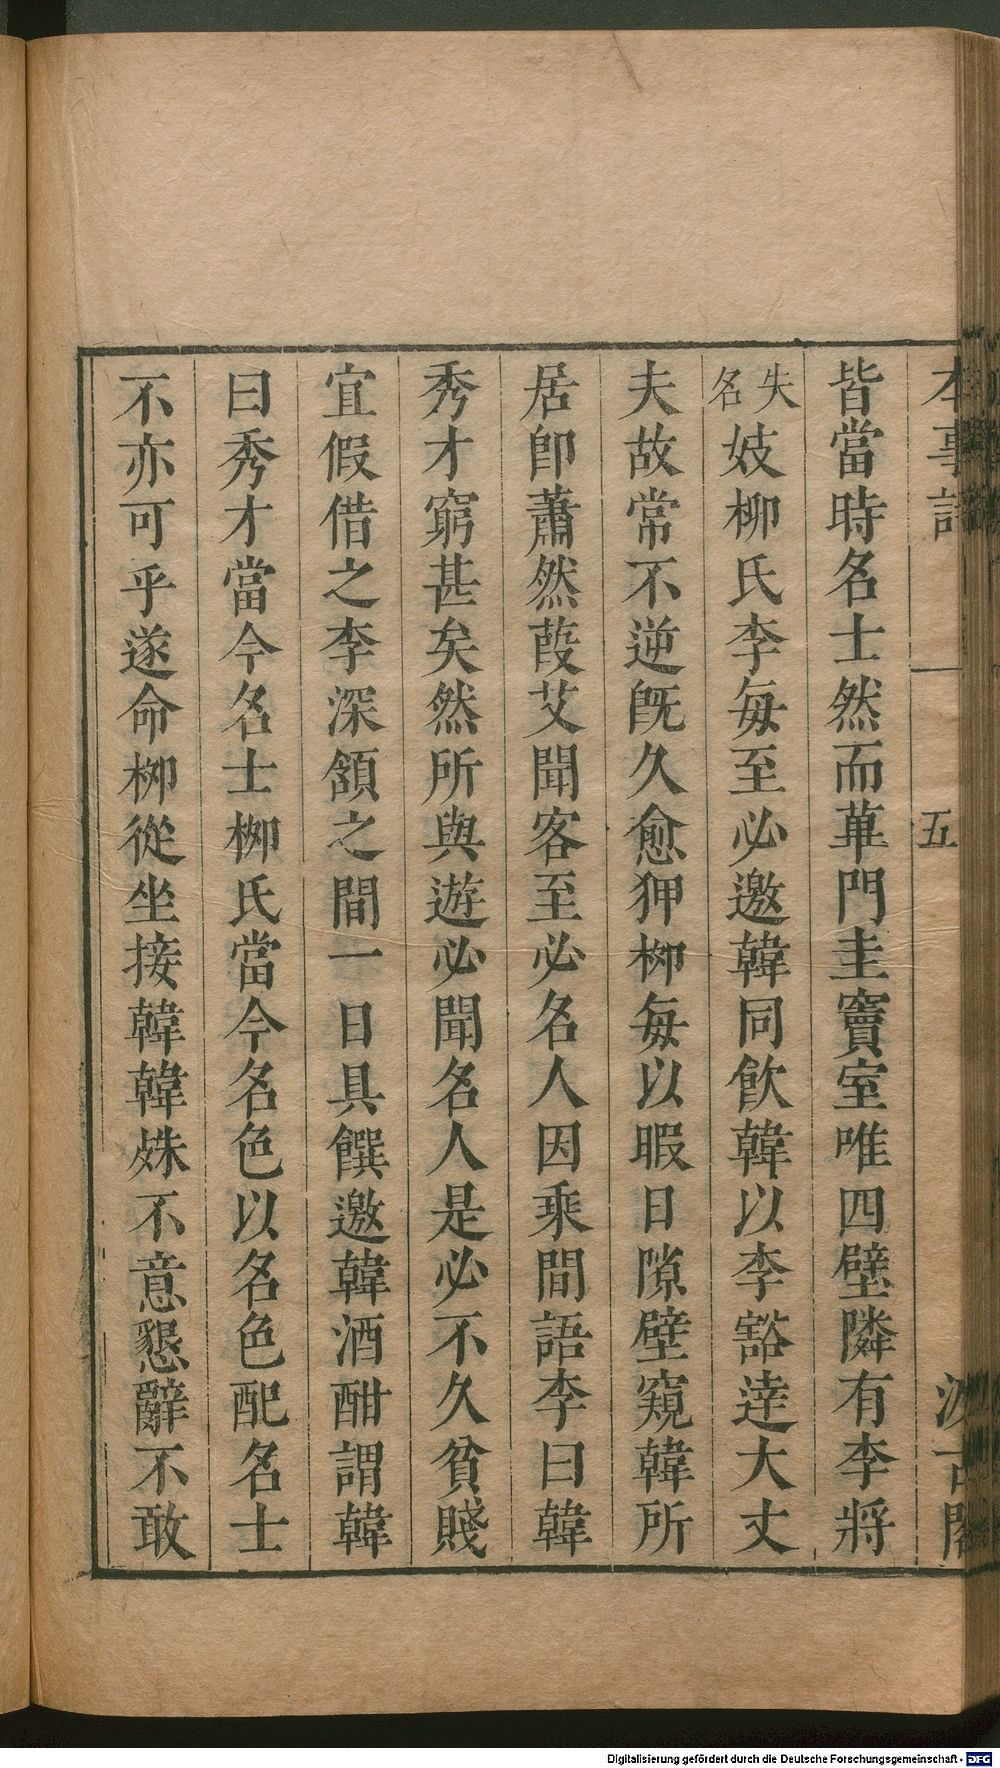 本事詩 五 汲古閣
皆當時名士然而蓽門圭竇室唯四壁隣有李將
失名妓柳氏李每至必邀韓同飲韓以李豁達大丈
夫故常不逆旣久愈狎栁每以暇日隙壁窺韓所
居卽蕭然葭艾聞客至必名人因乘間語李曰韓
秀才窮甚矣然所與遊必聞名人是必不久貧賤
宜假借之李深頷之間一日具饌邀韓酒酣謂韓
曰秀才當今名士栁氏當今名色以名色配名士
不亦可乎遂命栁從坐接韓韓殊不意懇辭不敢
Digitalisierung gefördert durch die Deutsche Forschungsgemeinschaft - DFG